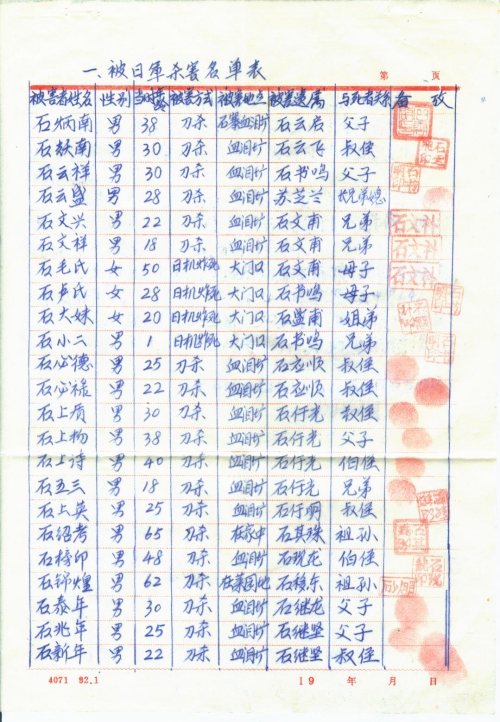 一、被日軍杀害名单表
第 页
被害者姓名 性别 当时年龄 被害方式 被害地点 被害遗属 与死者关系 备 攷
石炳南 男 38 刀杀 石寨血泪圹 石云启 父子
石妹南 男 30 刀杀 血泪圹 石云飞 叔侄
石云祥 男 30 刀杀 血泪圹 石书鸣 父子
石云盛 男 28 刀杀 血泪圹 苏芝兰
石文兴 男 22 刀杀 血泪圹 石文甫 兄弟
石文祥 男 18 刀杀 血泪圹 石文甫 兄弟
石毛氏 女 50 日机炸死 大门口 石文甫 母子
石卢氏 女 28 日机炸死 大门口 石书鸣 母子
石大妹 女 20 日机炸死 大门口 石盛甫 姐弟
石小二 男 1 日机炸死 大门口 石书鸣 兄弟
石必德 男 25 刀杀 血泪圹 石应顺 叔侄
石必禄 男 22 刀杀 血泪圹 石应顺 叔侄
石上质 男 30 刀杀 血泪圹 石仟光 叔侄
石上杨 男 38 刀杀 血泪圹 石仟光 父子
石上诗 男 40 刀杀 血泪圹 石仟光 伯侄
石五三 男 18 刀杀 血泪圹 石仟光 兄弟
石上英 男 25 刀杀 血泪圹 石仟啊 叔侄
石绍考 男 65 刀杀 在家中 石其珠 祖孙
石榜印 男 48 刀杀 血泪圹 石现龙 伯侄
石锦煌 男 62 刀杀 在菜园地 石稜东 祖孙
石泰年 男 30 刀杀 血泪圹 石继龙 父子
石兆年 男 25 刀杀 血泪圹 石继坚 父子
石新年 男 22 刀杀 血泪圹 石继坚 叔侄
石文科
石文科
石文科
4071 82.1
19 年 月 日